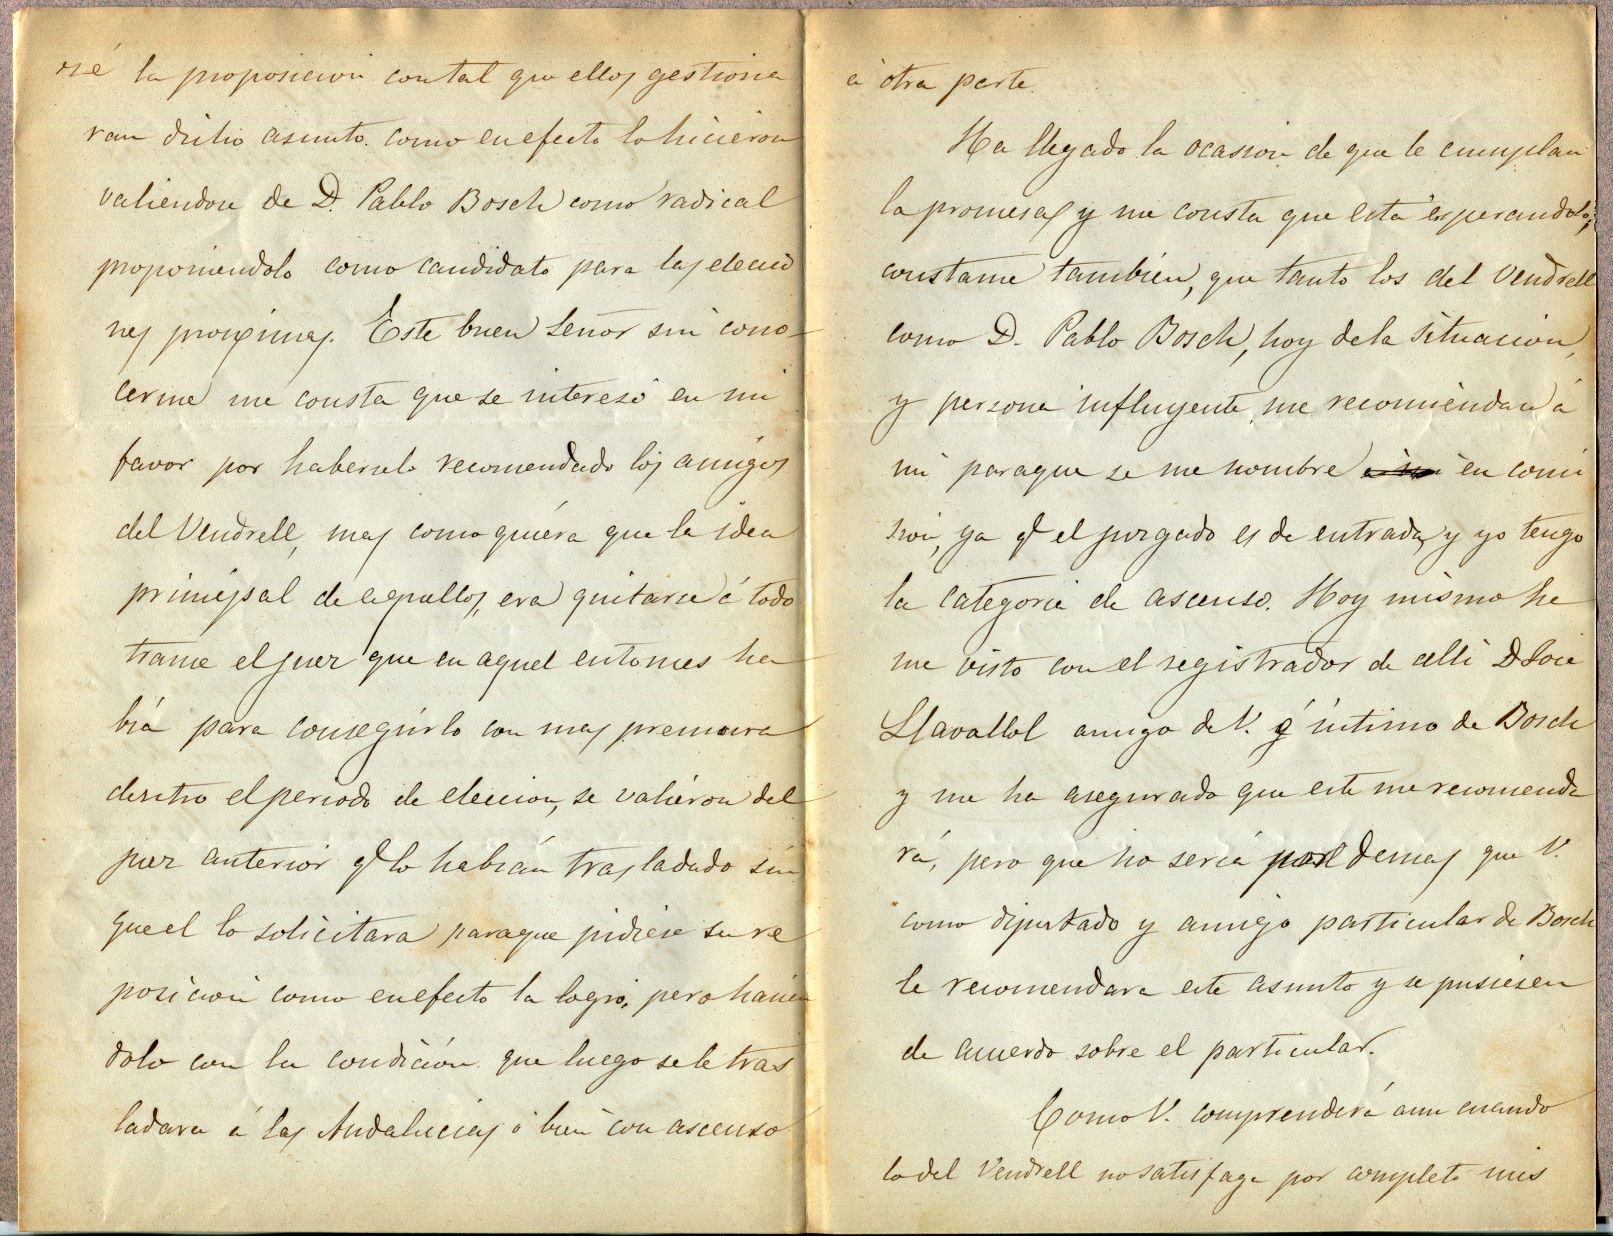 né la proposicion con tal que ellos gestiona
ran dicho asunto. como en efecto lo hicieron
valiendose de D. Pablo Bosch como radical
proponiendolo como candidato para las eleccio
nes proximas. Este buen Señor sin cono-
cerme me consta que se interesó en mi
favor por haberselo recomendado los amigos
del Vendrell, mas como quiera que la idea
principal de aquellos, era quitarse á todo
trance el juez que en aquel entonces ha
bia para conseguirlo con mas premura
dentro el periodo de eleccion, se valieron del
juez anterior qe lo habian trasladado sin
que el lo solicitara paraque pidiese su re
posicion como en efecto la logró, pero hacien
dolo con la condición que luego se le tras
ladara á las Andalucias ó bien con ascenso
á otra parte.
Ha llegado la ocasion de que le cumplan
la promesa y me consta que está esperandolo,
constame tambien, que tanto los del Vendrell
como D. Pablo Bosch, hoy de la situacion,
y persona influyente, me recomiendan á
mi paraque se me nombre en comi
sion, ya qe el juzgado es de entrada, y yo tengo
la categoria de ascenso. Hoy mismo he
me visto con el registrador de alli D. José
Llavallol amigo de V. é íntimo de Bosch
y me ha asegurado que este me recomenda
rá, pero que no seria por demas que V.
como diputado y amigo particular de Bosch
le recomendara este asunto y se pusiesen
de acuerdo sobre el particular.
Como V. comprenderá aun cuando
lo del Vendrell no satisfaga por completo mis